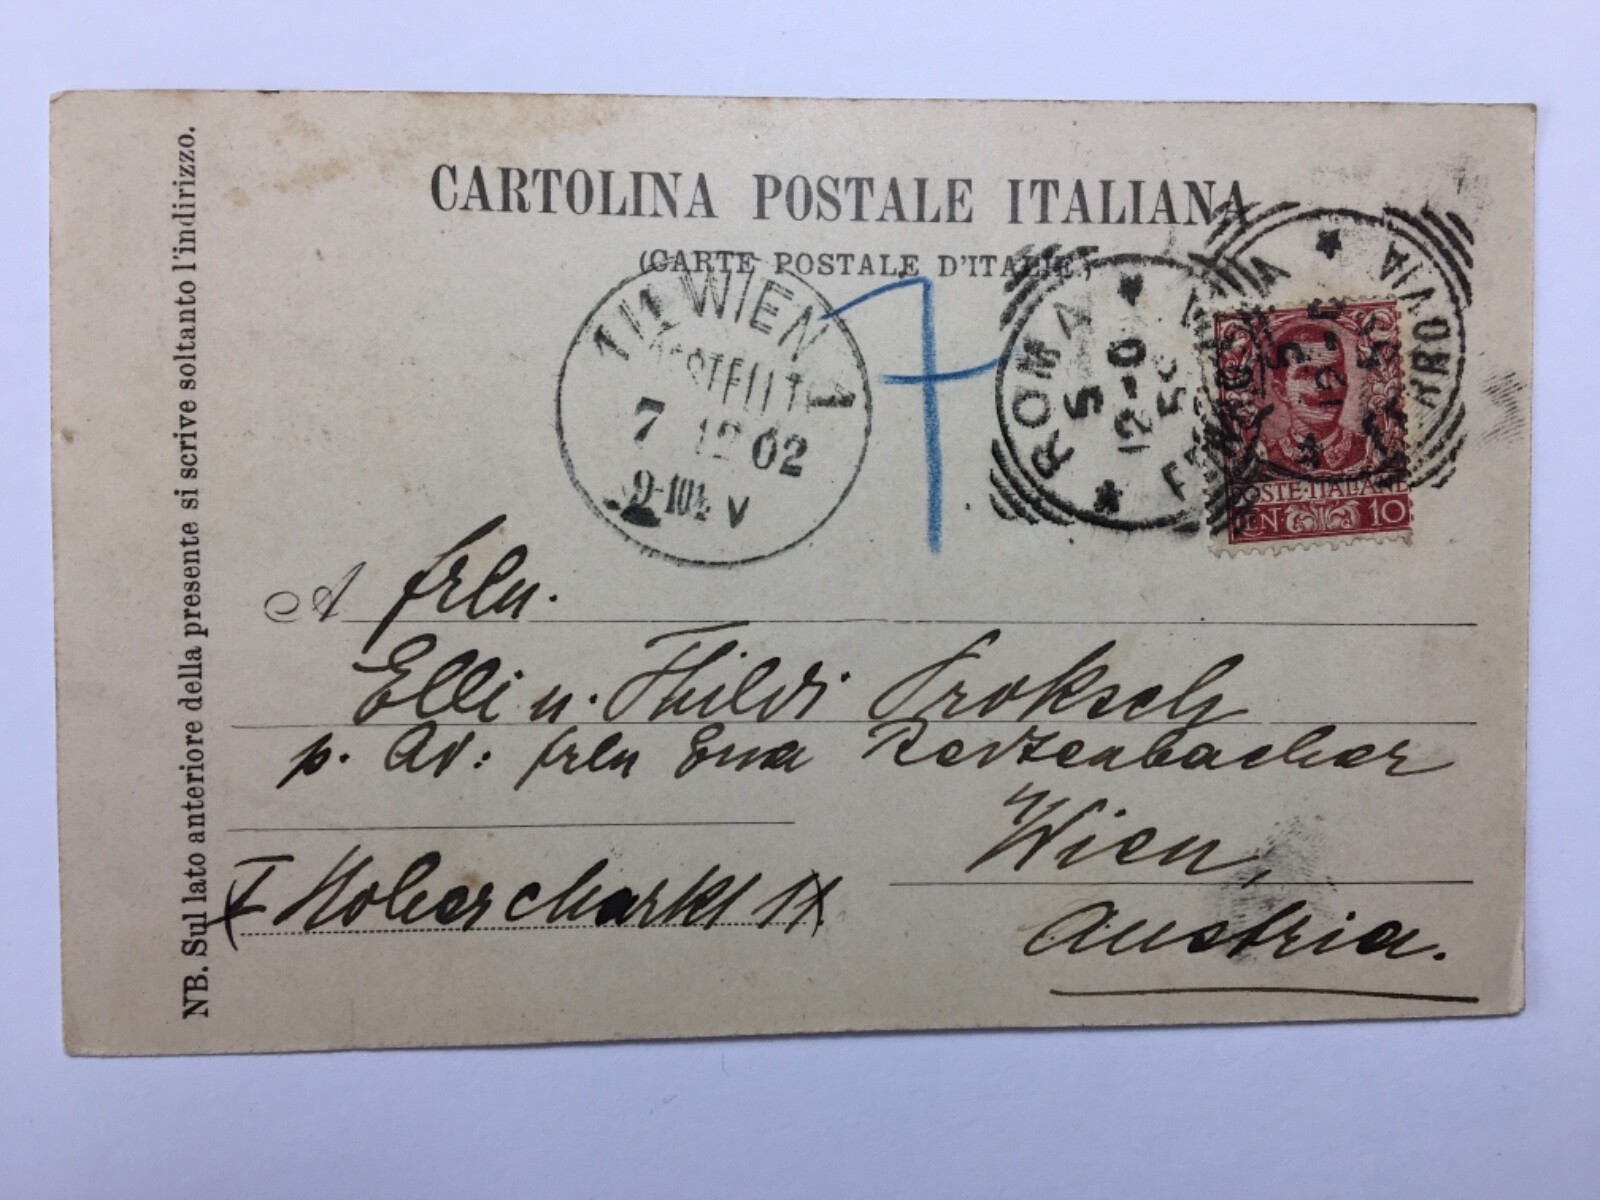 CARTOLINA POSTALE ITALIANA
(CARTE POSTALE D'ITALIE.)
1/1 WIEN 1
BESTELLT
7 12 02
9-10½ V
7
ROMA
5
12-0
5S
FERROVIA
ROMA
5
12-0
5S
FERROVIA
POSTE·ITALIANE
CEN· 10
A frln.
Elli u. Hildi Proksch
p. Ad: frln Ema
Wien,
I Hoher Markt
Austria.
NB. Sul lato anteriore della presente si scrive soltanto l'indirizzo.